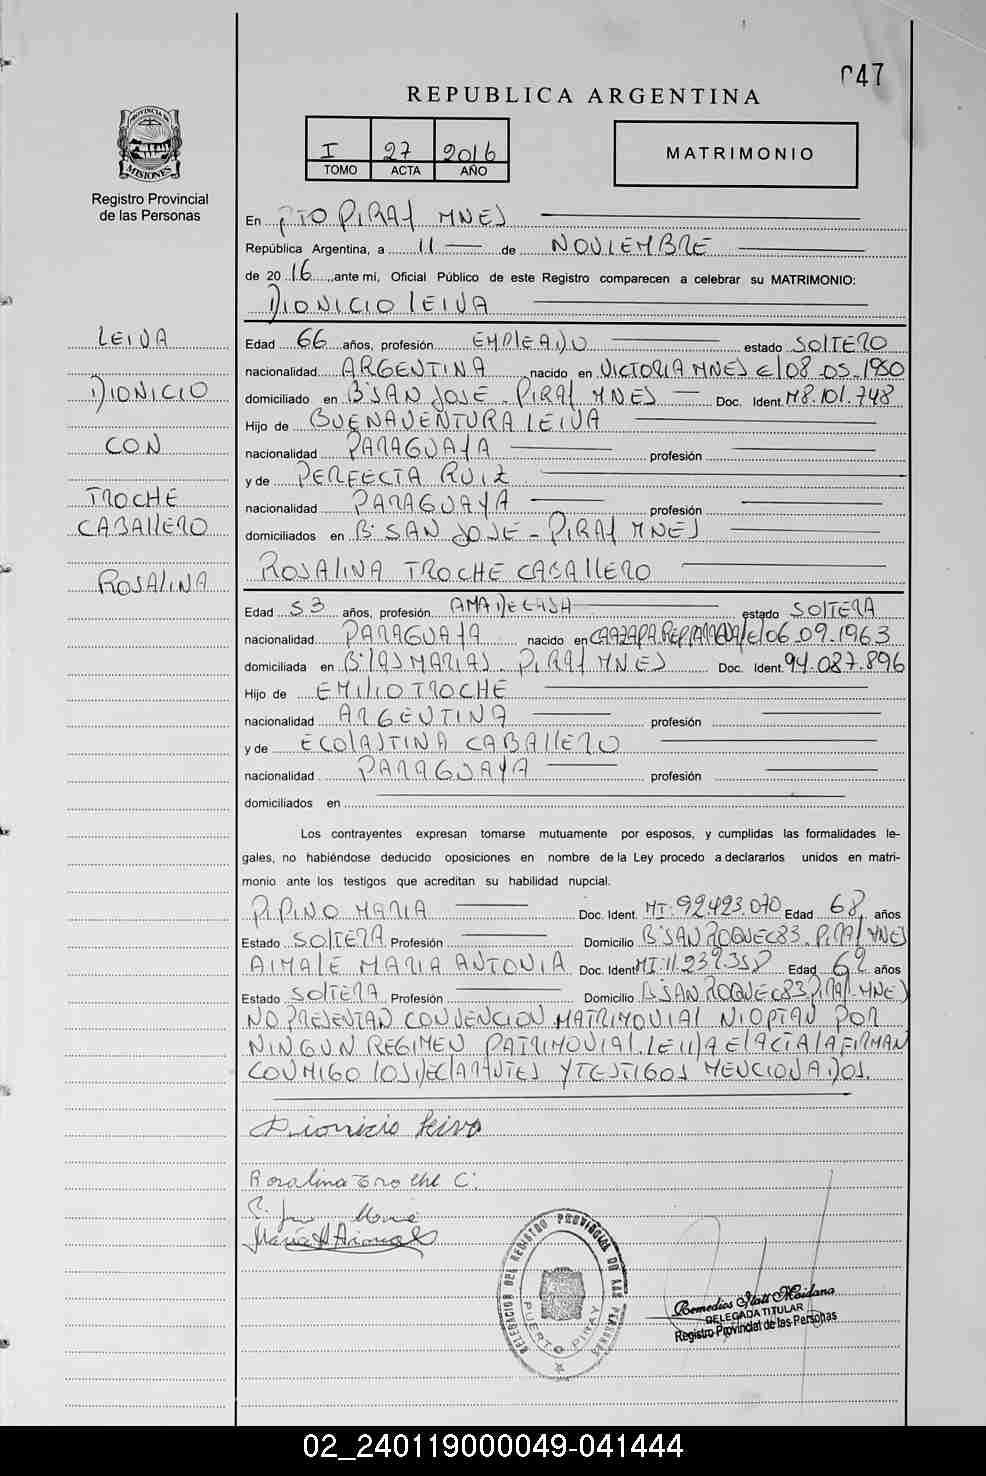 047
REPUBLICA ARGENTINA
I 27 2016
TOMO ACTA AÑO
MATRIMONIO
PROVINCIA DE
MISIONES
Registro Provincial
de las Personas
En PTO PIRAY MNES
República Argentina, a 11 de NOVIEMBRE
de 2016, ante mi, Oficial Público de este Registro comparecen a celebrar su MATRIMONIO:
DIONICIO LEIVA
LEIVA
DIONICIO
CON
TROCHE
CABALLERO
ROSALINA
Edad 66 años, profesión EMPLEADO estado SOLTERO
nacionalidad ARGENTINA nacido en VICTORIA MNES EL 08.05.1950
domiciliado en Bº SAN JOSE - PIRAY MNES Doc. Ident. M8.101.748
Hijo de BUENAVENTURA LEIVA
nacionalidad PARAGUAYA profesión
y de PERFECTA RUIZ
nacionalidad PARAGUAYA profesión
domiciliados en Bº SAN JOSE - PIRAY MNES
ROSALINA TROCHE CABALLERO
Edad 53 años, profesión AMA DE CASA estado SOLTERA
nacionalidad PARAGUAYA nacido en CAAZAPA. REP. EL 06.09.1963
domiciliada en Bº LAS MARIAS. PIRAY MNES Doc. Ident. 94.087.896
Hijo de EMILIO TROCHE
nacionalidad ARGENTINA profesión
y de ECOLASTINA CABALLERO
nacionalidad PARAGUAYA profesión
domiciliados en
Los contrayentes expresan tomarse mutuamente por esposos, y cumplidas las formalidades le-
gales, no habiéndose deducido oposiciones en nombre de la Ley procedo a declararlos unidos en matri-
monio ante los testigos que acreditan su habilidad nupcial.
PIPINO MARIA Doc. Ident. MI.92.423.070 Edad 68 años
Estado SOLTERA Profesión Domicilio Bº SAN ROQUE C83. PIRAY MNES
AIMALE MARIA ANTONIA Doc. Ident MI:11.239.358 Edad 62 años
Estado SOLTERA Profesión Domicilio Bº SAN ROQUE C83 PIRAY-MNES
NO PRESENTAN CONVENCION MATRIMONIAL NI OPTAN POR
NINGUN REGIMEN PATRIMONIAL. LEIDA EL ACTA LA FIRMAN
CONMIGO LOS DECLARANTES Y TESTIGOS MENCIONADOS.
Dionicio Leiva
Rosalina Troche C.
DELEGACION DEL REGISTRO PROVINCIAL DE LAS PERSONAS
PUERTO PIRAY
Remedios Itatí Maidana
DELEGADA TITULAR
Registro Provincial de las Personas
02_240119000049-041444